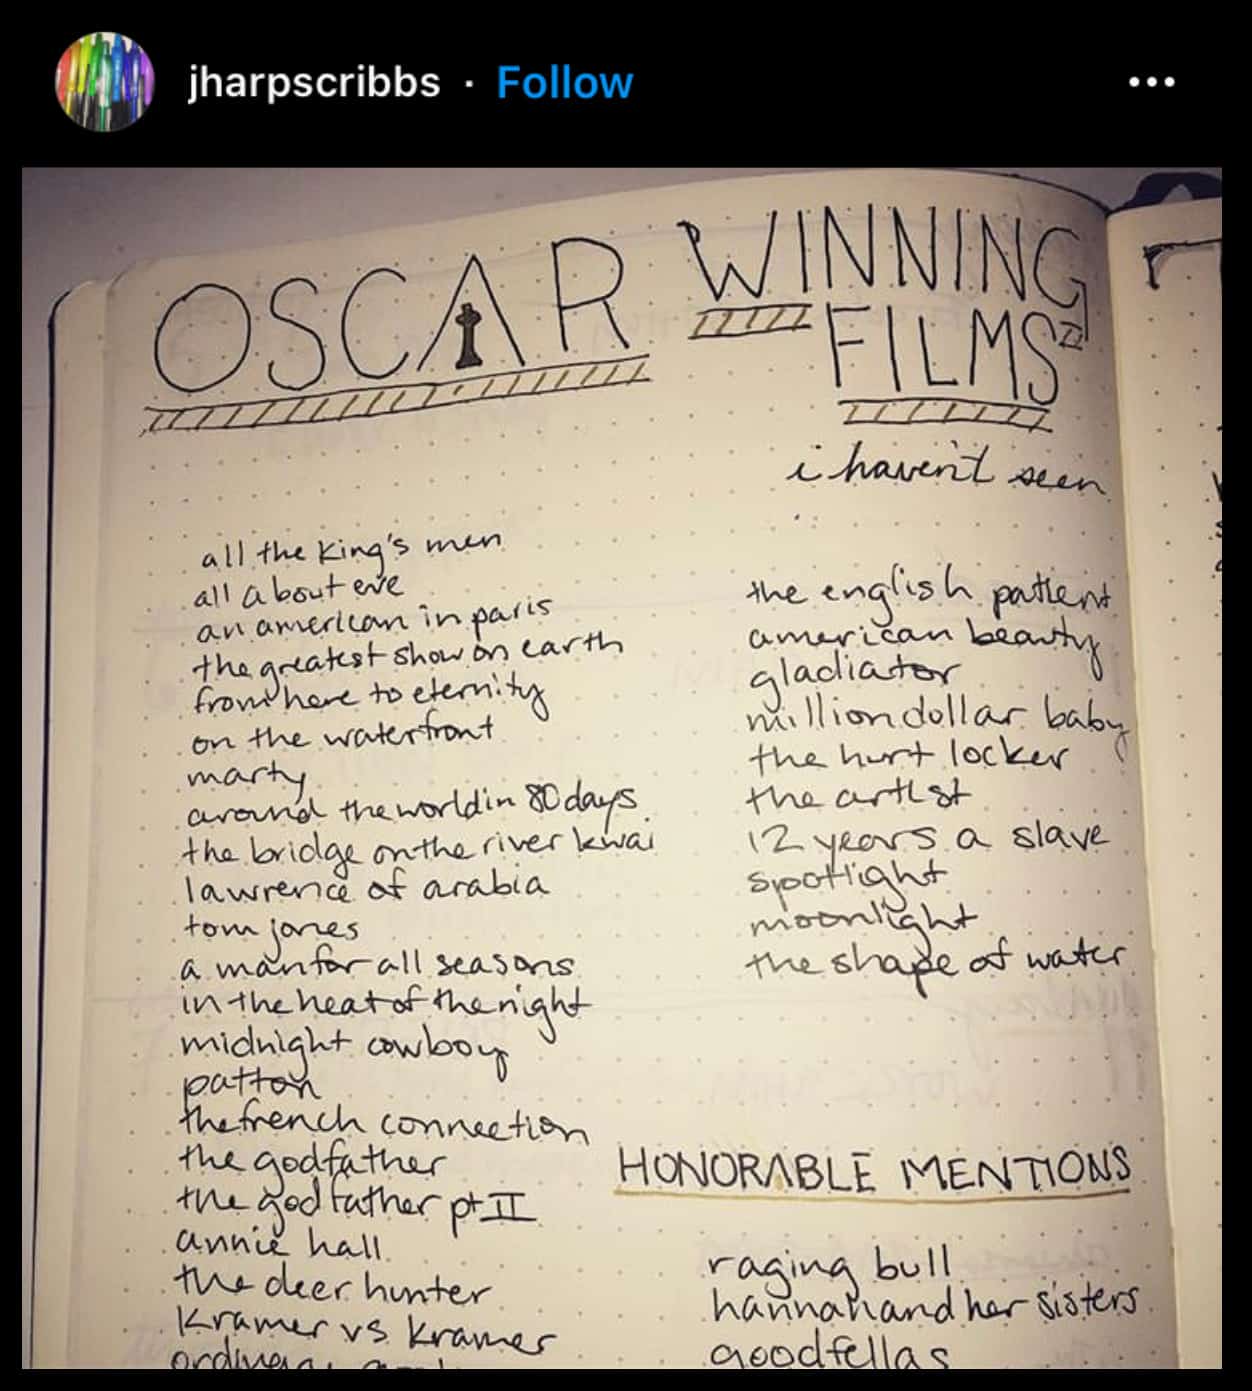 jharpscribbs · Follow
OSCAR WINNING
FILMS
i haven't seen
all the king's men
all about eve
an american in paris
the greatest show on earth
from here to eternity
on the waterfront
marty
around the world in 80 days
the bridge on the river kwai
lawrence of arabia
tom jones
a man for all seasons
in the heat of the night
midnight cowboy
patton
the french connection
the godfather
the godfather pt II
annie hall
the deer hunter
kramer vs kramer
the english patient
american beauty
gladiator
million dollar baby
the hurt locker
the artist
12 years a slave
spotlight
moonlight
the shape of water
HONORABLE MENTIONS
raging bull
hannah and her sisters
goodfellas